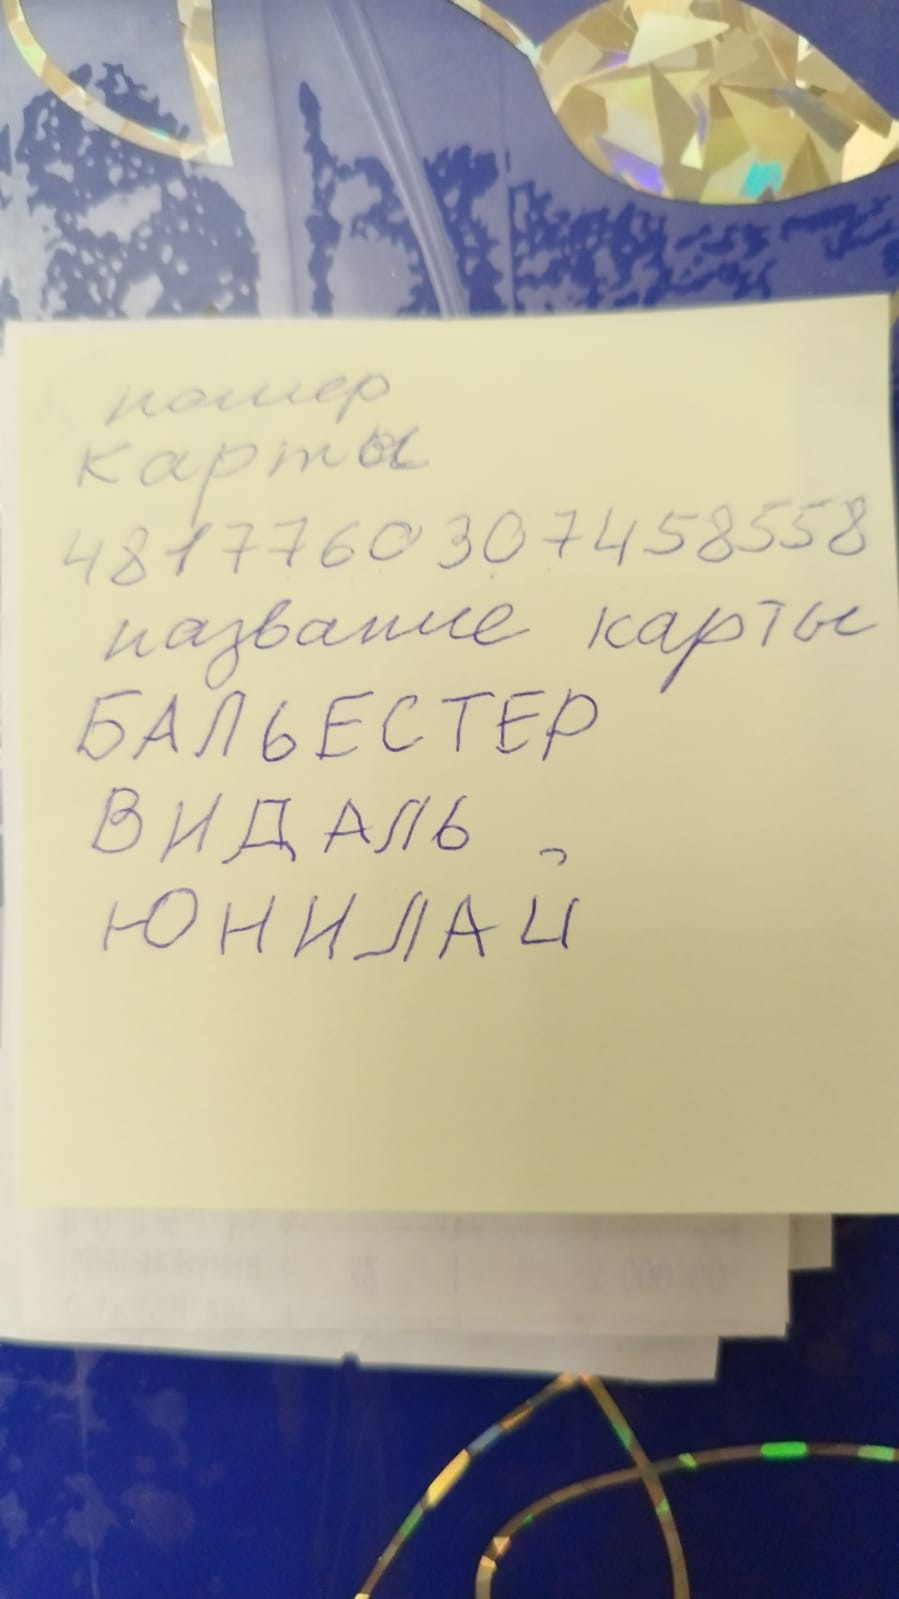 номер
карты
4817760307458558
название карты
БАЛЬЕСТЕР
ВИДАЛЬ
ЮНИЛАЙ